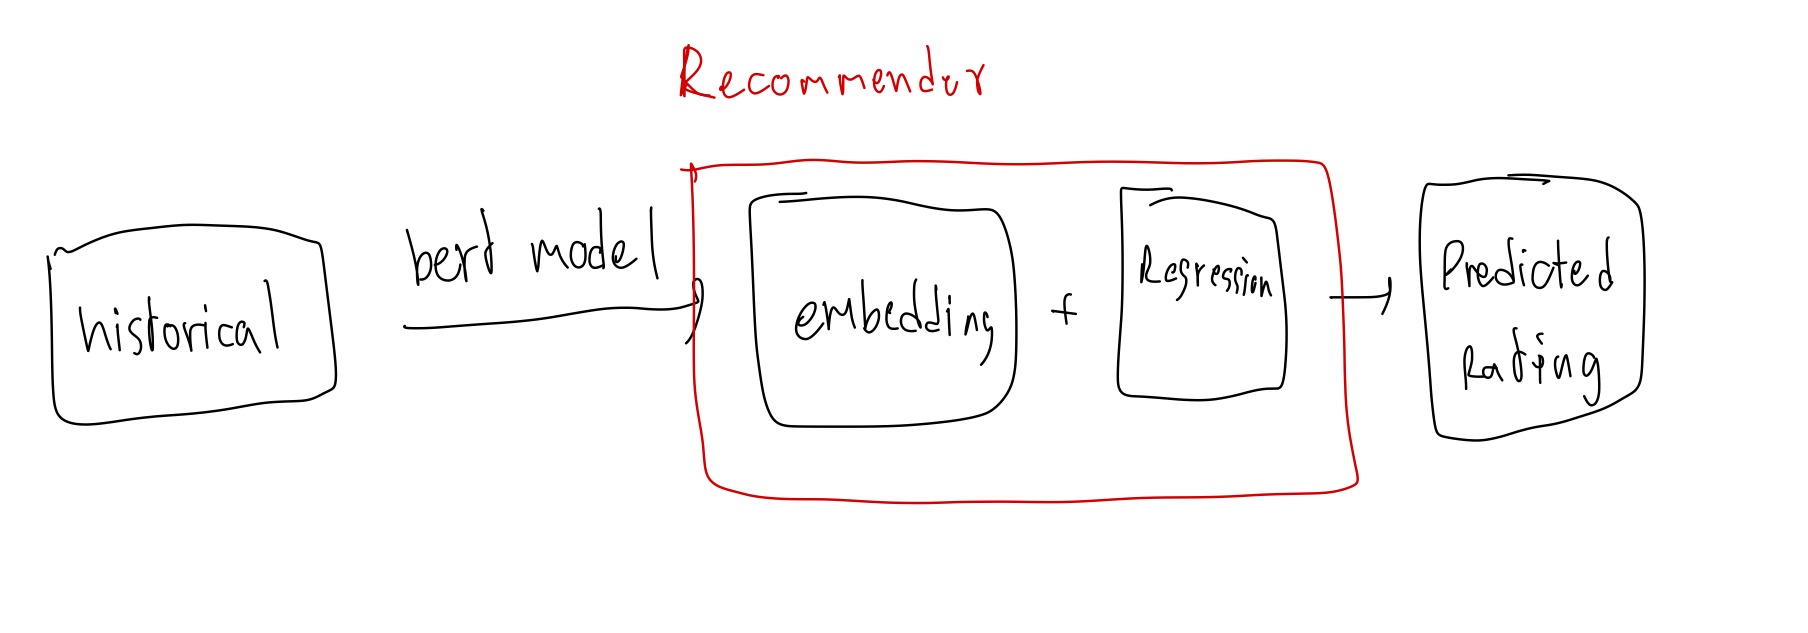 Recommender
historical
bert model
embedding
+
Regression
Predicted
Rating